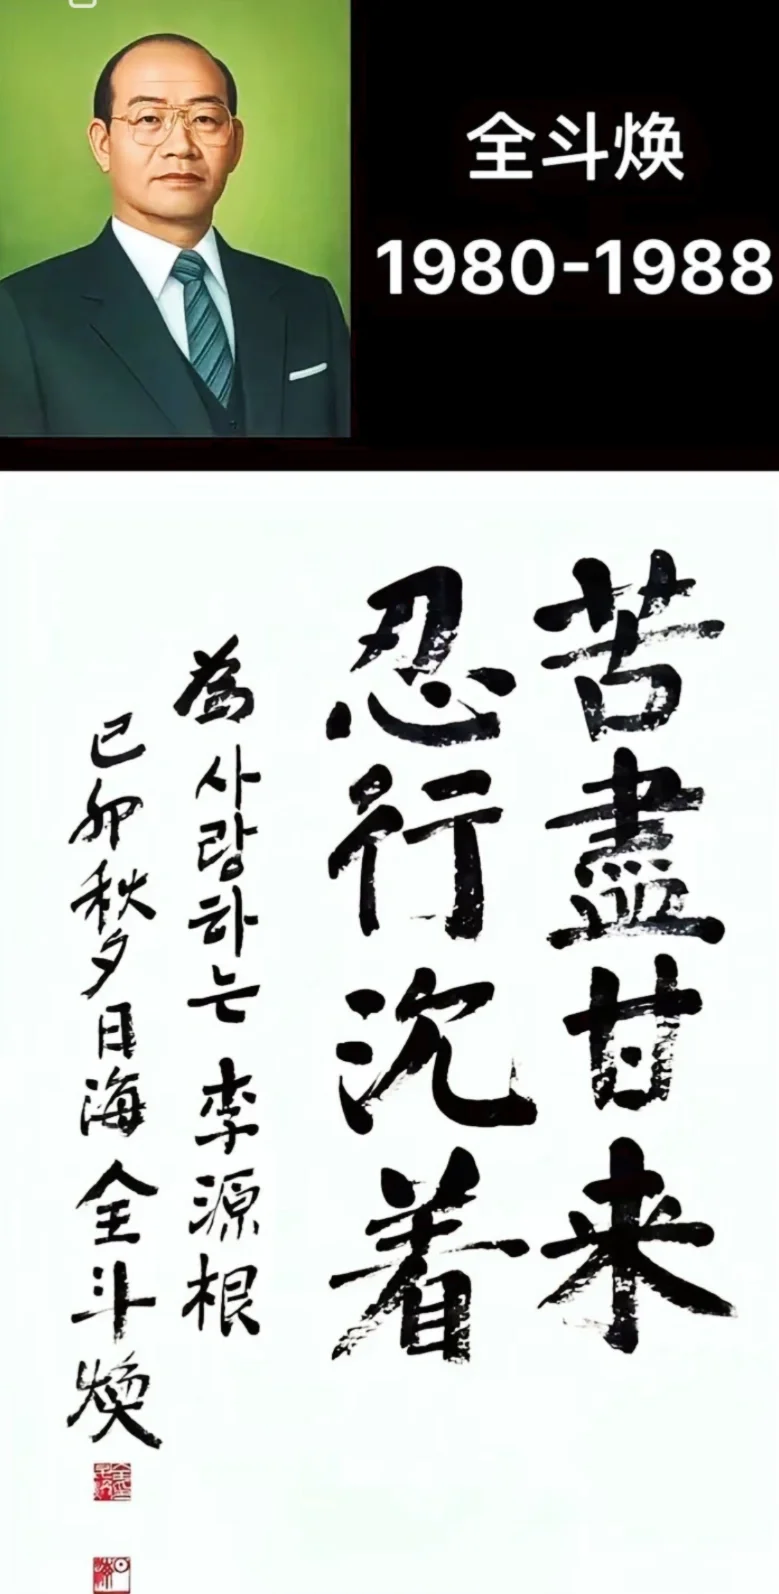 全斗焕
1980-1988
苦盡甘来
忍行沉着
為 사랑하는 李源根
己卯秋夕日海 全斗煥